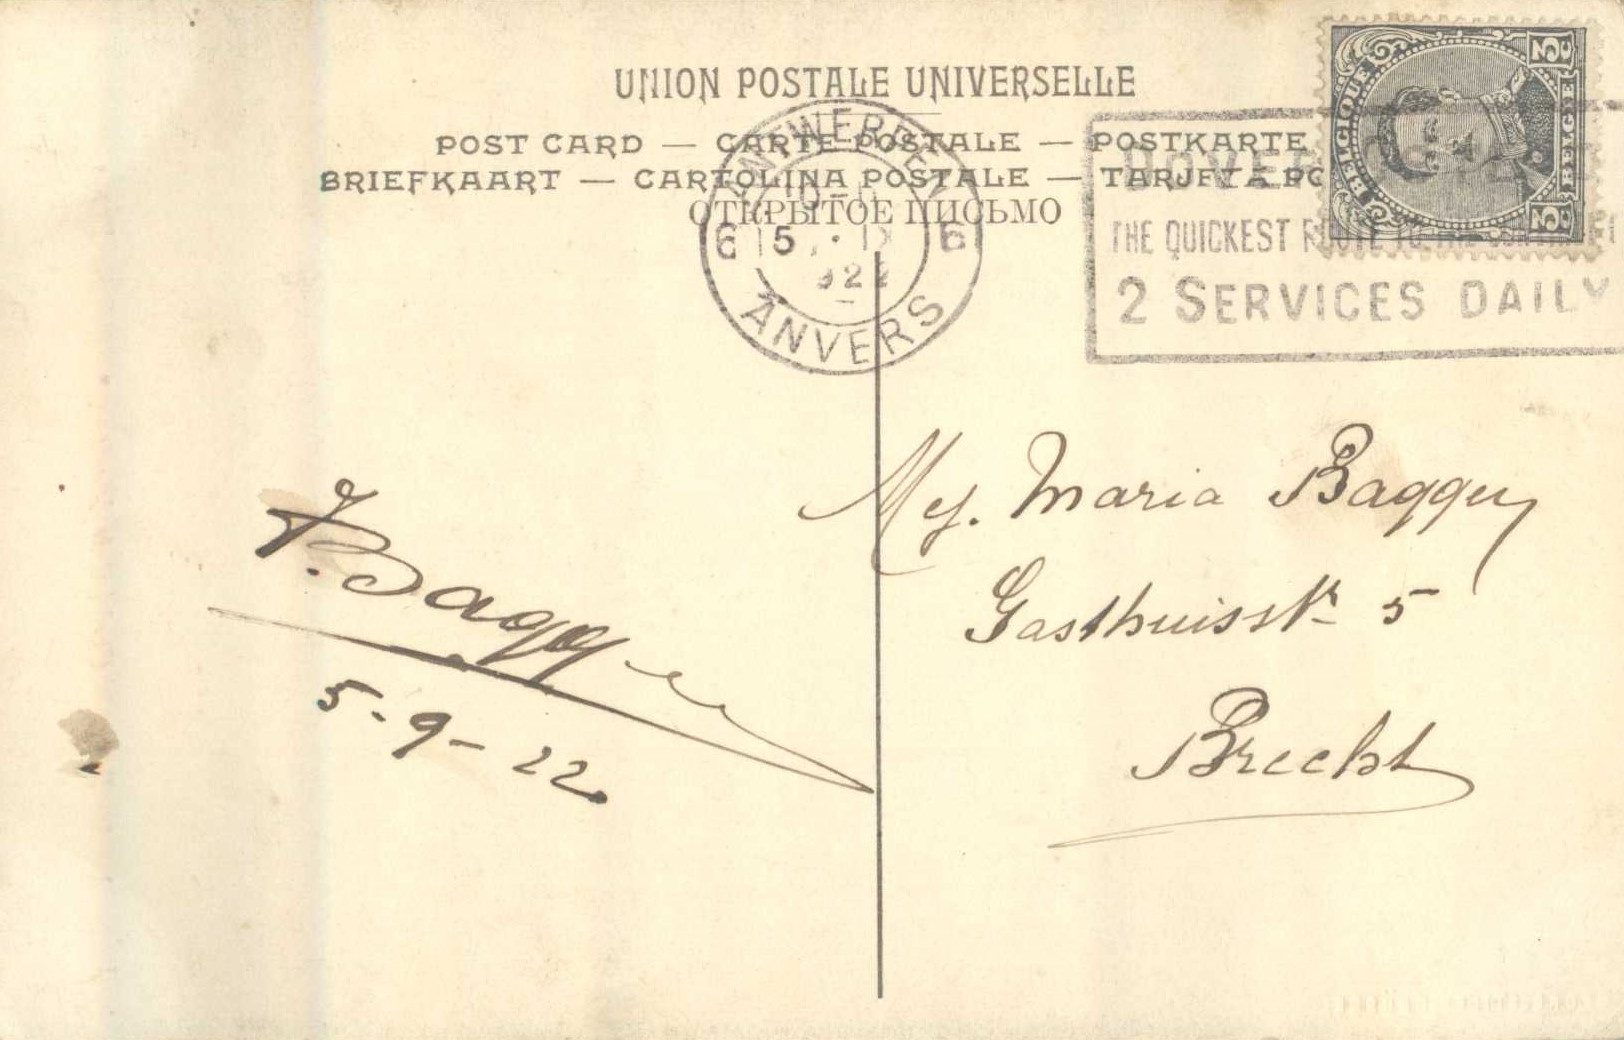 UNION POSTALE UNIVERSELLE
POST CARD — CARTE POSTALE — POSTKARTE
BRIEFKAART — CARTOLINA POSTALE — TARJETA PO
ОТКРЫТОЕ ПИСЬМО
ANTWERPEN
6 5 IX 6
1922
ANVERS
DOVER
THE QUICKEST ROUTE TO THE CONTINENT
2 SERVICES DAILY
BELGIQUE
BELGIE
3c 3c
Mej. Maria Baggen
Gasthuisstr 5
Brecht
Baggen
5-9-22